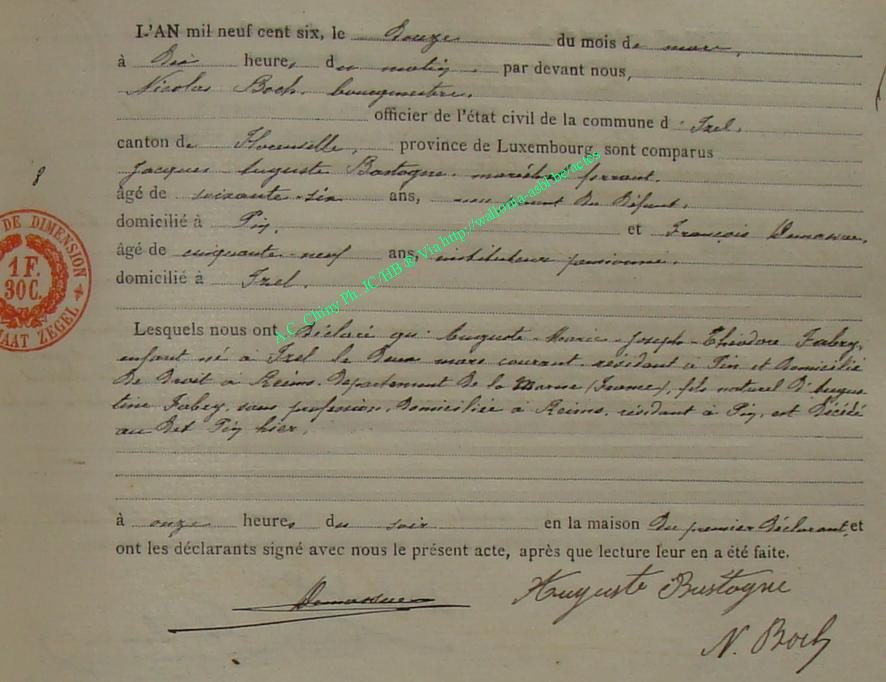 L'AN mil neuf cent six, le Douze du mois de mars,
à Dix heures du matin, par devant nous,
Nicolas Boch, bourgmestre,
officier de l'état civil de la commune d'Izel,
canton de Florenville, province de Luxembourg, sont comparus
Jacques Auguste Bastogne, maréchal ferrant,
8
âgé de soixante-six ans, non parent du Défunt,
domicilié à Pin, et François Demasue,
âgé de cinquante-neuf ans, instituteur pensionné,
domicilié à Izel,
DE DIMENSION
1 F.
30 C.
MAAT ZEGEL
A.C. Chiny Ph. IC/HB ® Via http://wallonia-asbl.be/actes
Lesquels nous ont Déclaré qu'Auguste-Marie-Joseph-Théodore Fabry,
enfant né à Izel le Deux mars courant, résidant à Pin et Domicilié
De Droit à Reims, Département De la Marne (France), fils naturel D'Augus-
tine Fabry, sans profession, Domiciliée à Reims, résidant à Pin, est Décédé
au Dit Pin hier,
à onze heures du soir en la maison Du premier Déclarant, et
ont les déclarants signé avec nous le présent acte, après que lecture leur en a été faite.
Auguste Bastogne
N. Boch